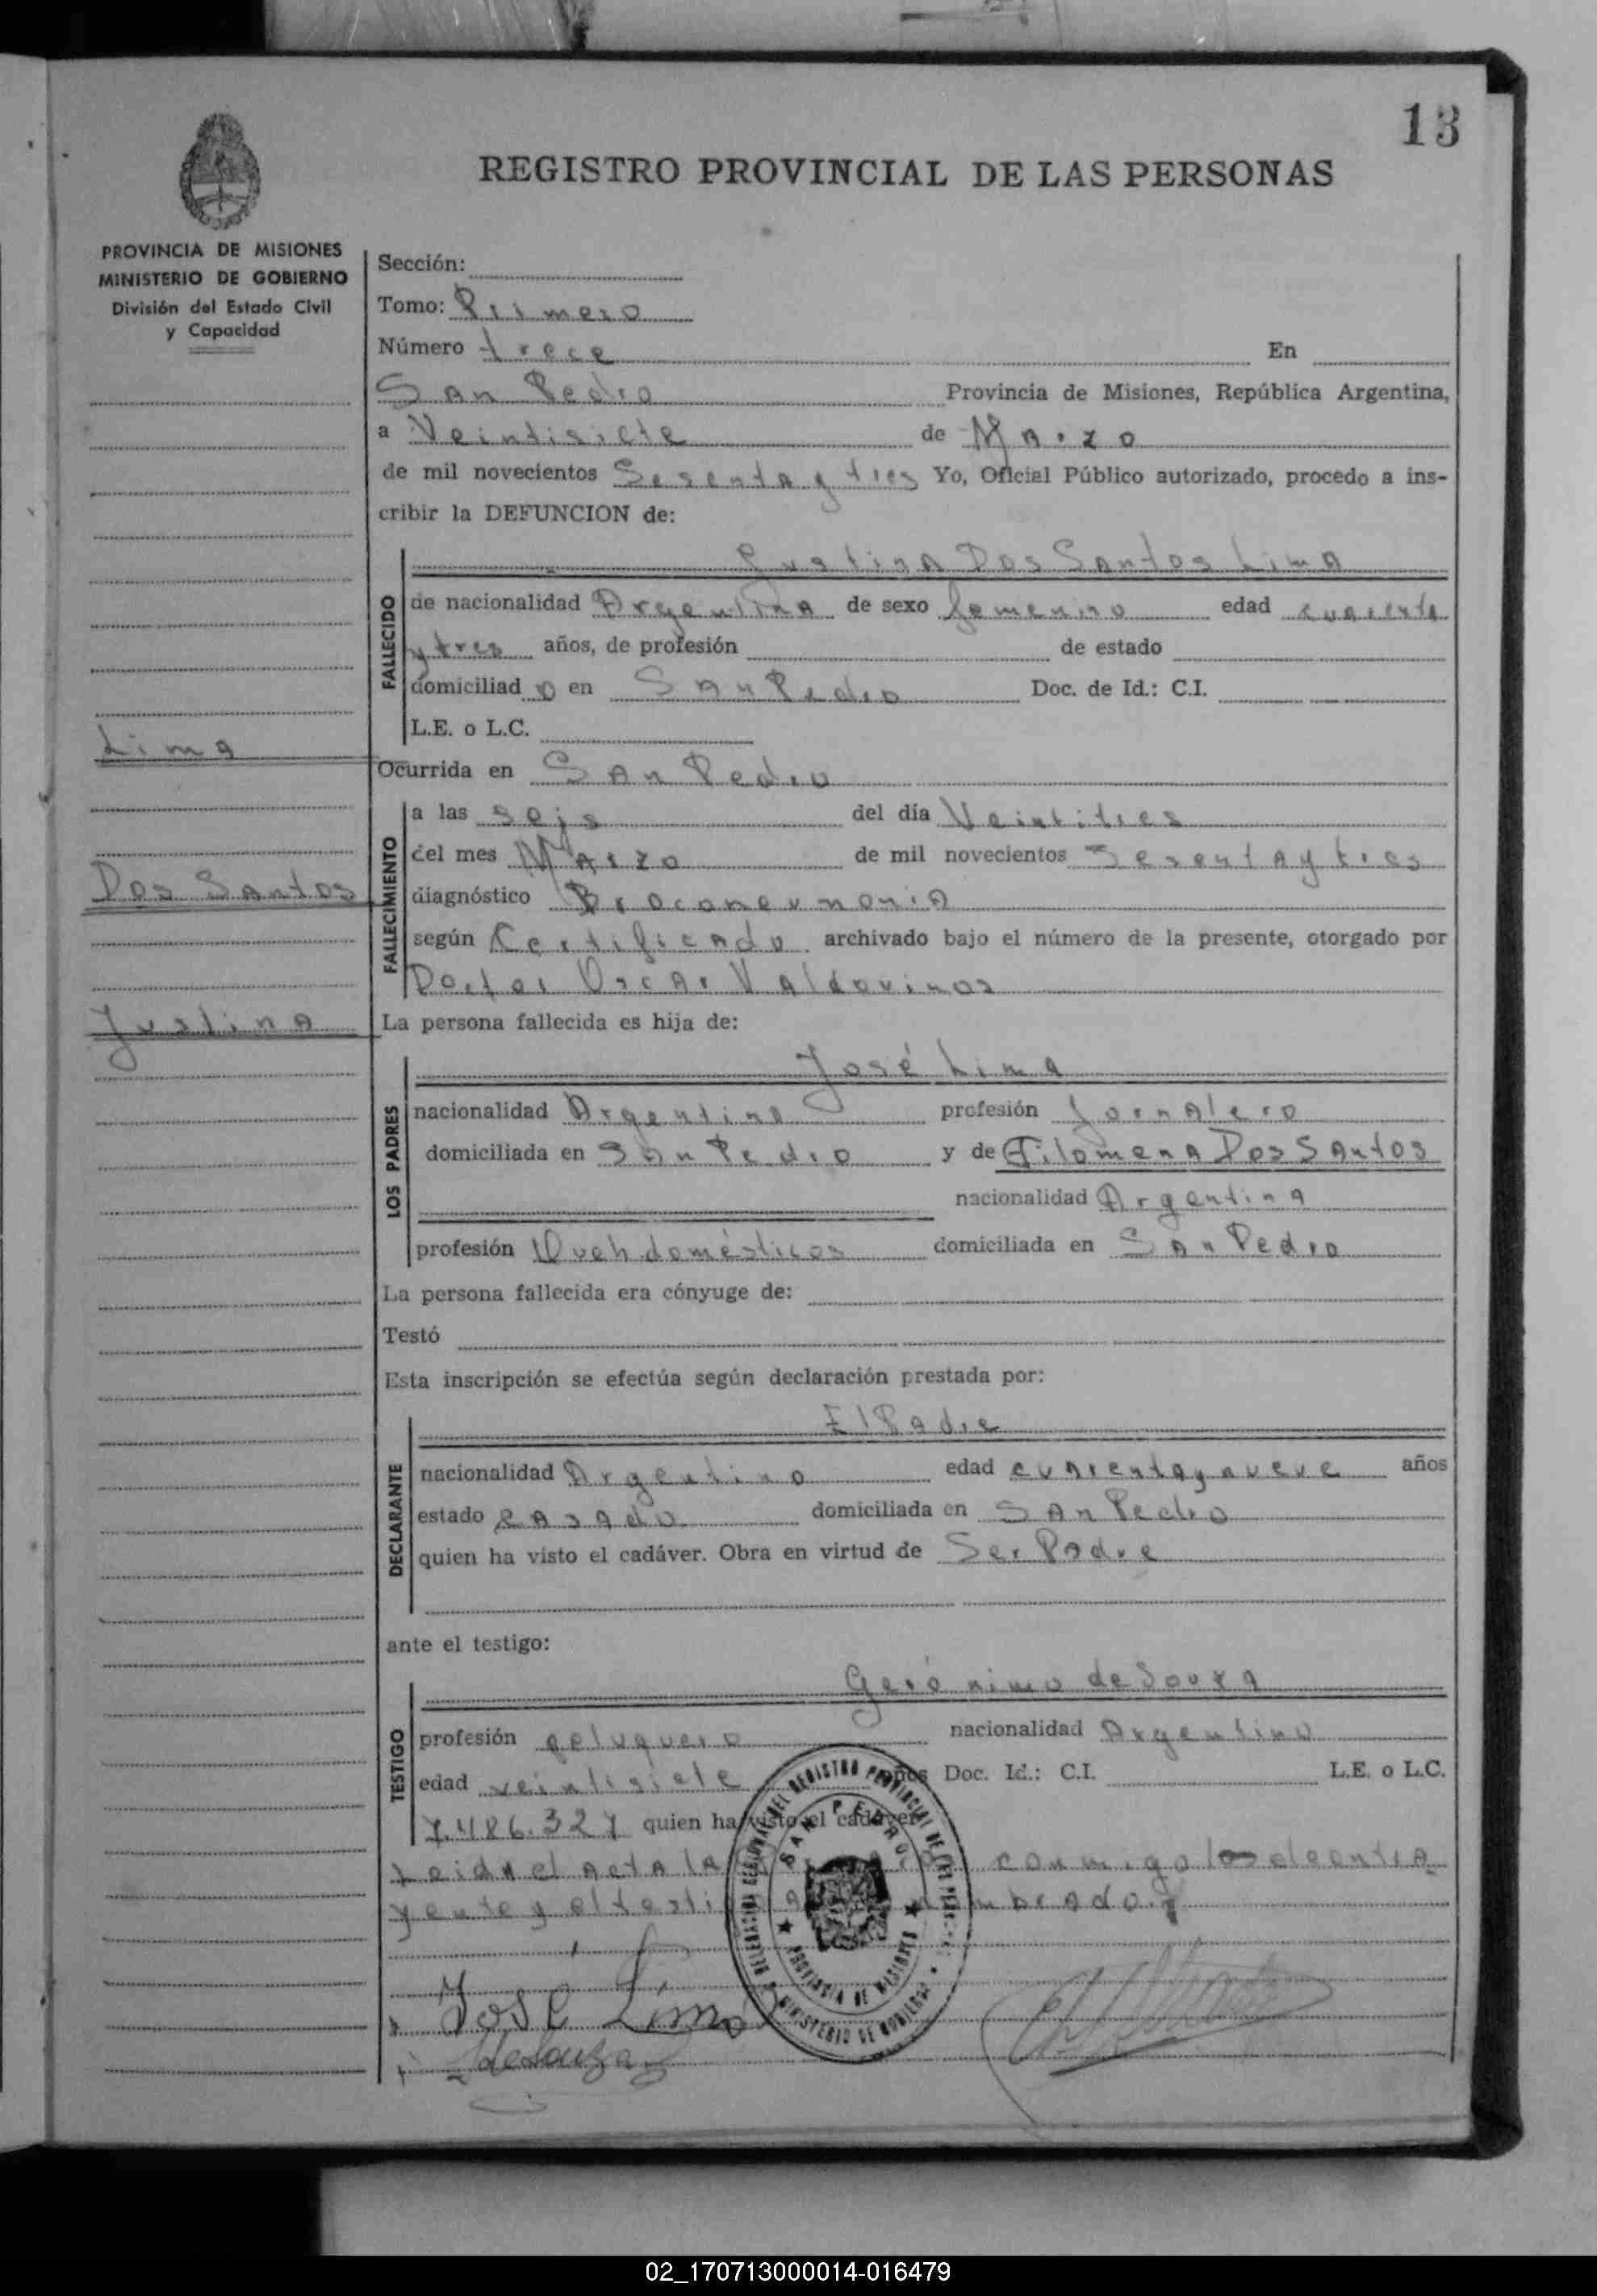 13
REGISTRO PROVINCIAL DE LAS PERSONAS
PROVINCIA DE MISIONES
MINISTERIO DE GOBIERNO
División del Estado Civil
y Capacidad
Lima
Dos Santos
Justina
Sección:
Tomo: Primero
Número trece En
San Pedro Provincia de Misiones, República Argentina,
a Veintisiete de Marzo
de mil novecientos Sesenta y tres Yo, Oficial Público autorizado, procedo a ins-
cribir la DEFUNCION de:
FALLECIDO
Justina Dos Santos Lima
de nacionalidad Argentina de sexo femenino edad cuarenta
y tres años, de profesión de estado
domiciliad o en San Pedro Doc. de Id.: C.I.
L.E. o L.C.
Ocurrida en San Pedro
FALLECIMIENTO
a las seis del día Veintitres
del mes Marzo de mil novecientos Sesenta y tres
diagnóstico Broconeumonia
según Certificado archivado bajo el número de la presente, otorgado por
Doctor Oscar Valdovinos
La persona fallecida es hija de:
LOS PADRES
José Lima
nacionalidad Argentino profesión Jornalero
domiciliada en San Pedro y de Filomena Dos Santos
nacionalidad Argentina
profesión Queh domésticos domiciliada en San Pedro
La persona fallecida era cónyuge de:
Testó
Esta inscripción se efectúa según declaración prestada por:
DECLARANTE
El Padre
nacionalidad Argentino edad cuarenta y nueve años
estado casado domiciliada en San Pedro
quien ha visto el cadáver. Obra en virtud de Ser Padre
ante el testigo:
TESTIGO
Gerónimo de Souza
profesión peluquero nacionalidad Argentino
edad veintisiete años Doc. Id.: C.I. L.E. o L.C.
7.486.327 quien ha visto el cadáver
Leida el acta la conmigo
yente y el
José Lima
deSouza
SAN PEDRO
PROVINCIA DE MISIONES
MINISTERIO DE GOBIERNO
02_170713000014-016479